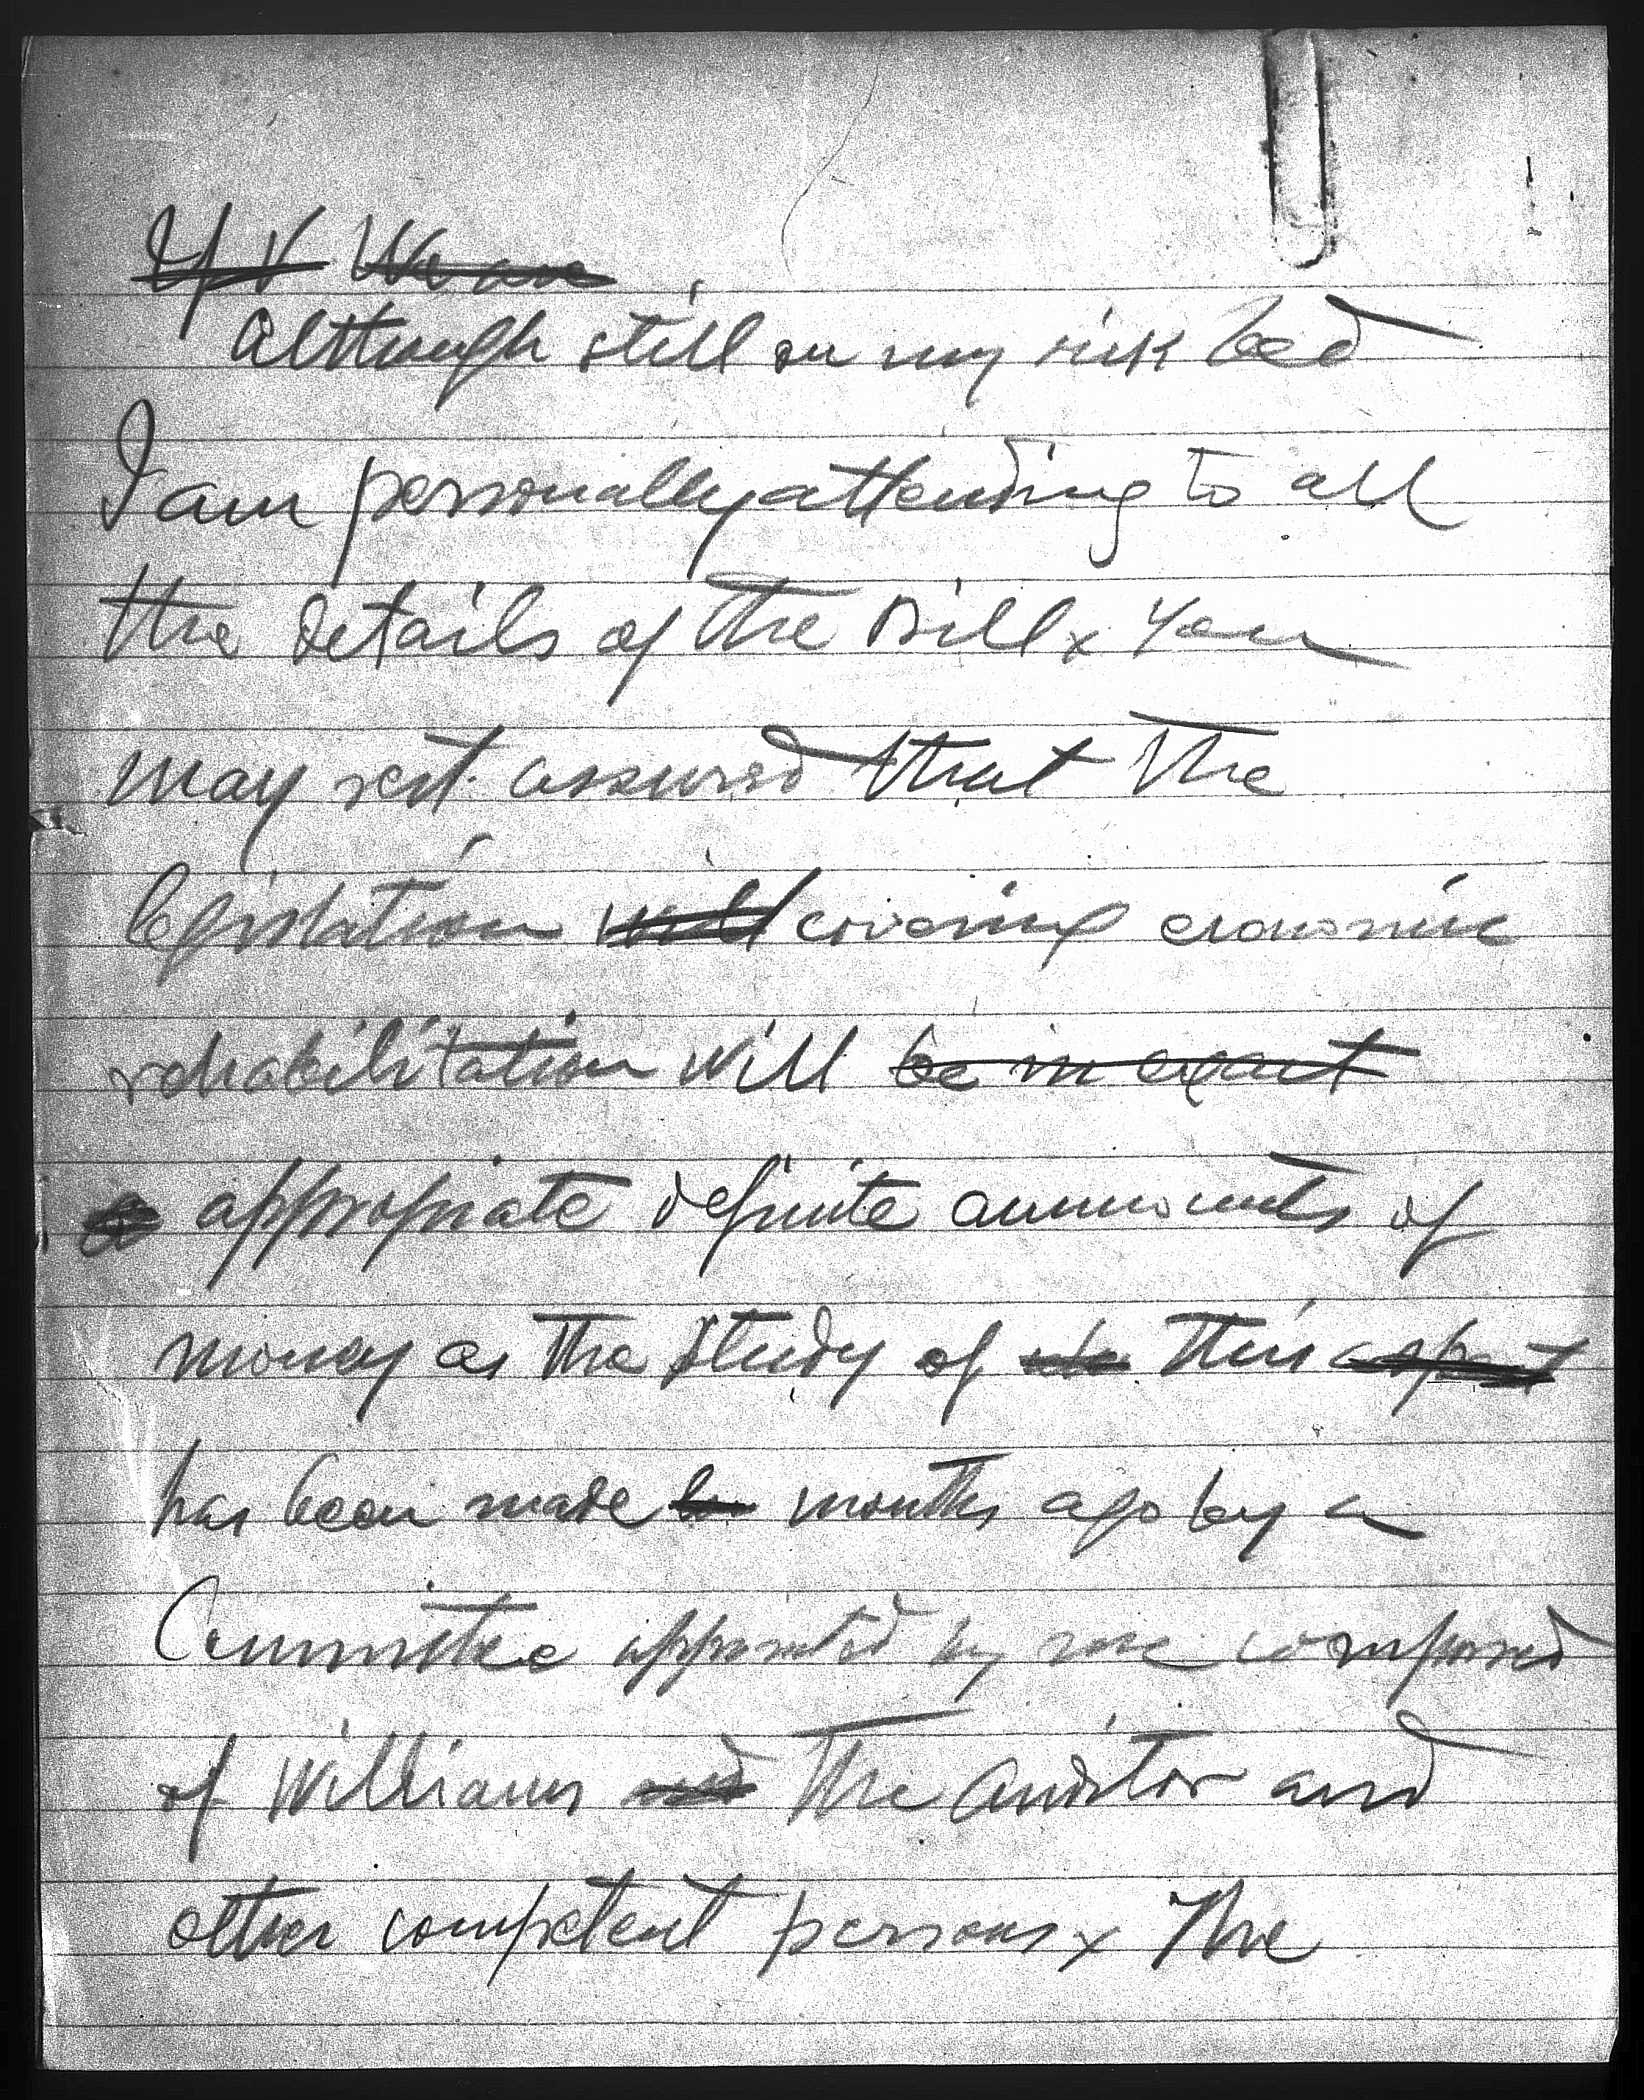 We are
Although still on my sick bed
I am personally attending to all
the details of the Bill x You
may rest assured that the
legislation will covering economic
rehabilitation will be in exact
appropriate definite ammounts of
money as the study of this aspect
has been made months ago by a
Committee appointed by me composed
of Williams and the Auditor and
other competent persons x The